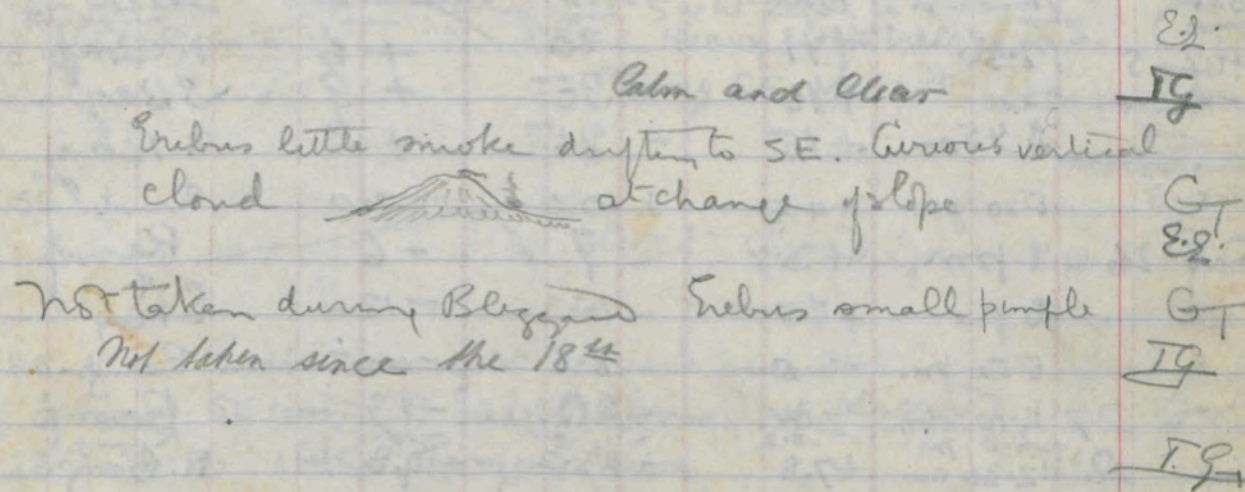 E.J.
Calm and Clear TG
Erebus little smoke drifting to SE. Curious vertical
cloud at change of slope GT
E.J.
Not taken during Blizzard Erebus small pimple GT
Not taken since the 18th TG
T.G